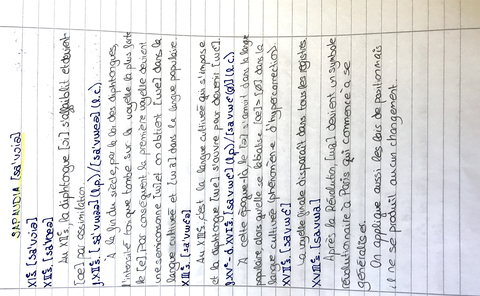 SAPAUDIA [sa'vɔia]
XIs. [sa'vɔiə]
XIIs. [sa'vœə]
Au XIIs, la diphtongue [ɔi] s'affaiblit et devient
[œ] par assimilation.
A la fin du siècle, par la loi des diphtongues,
l'intensité tonique tombe sur la voyelle la plus forte
le [e]. Par conséquent la première voyelle devient
une semiconsonne [w] et on obtient [we] dans la
langue cultivée et [wa] dans la langue populaire.
XIIIs.
Au XIIIs, c'est la langue cultivée qui s'impose
et la diphtongue [we] s'ouvre pour devenir [wɛ].
A cette époque-là, le [ə] s'amuït dans la langue
populaire alors qu'elle se labialise [œ] > [ø] dans la
langue cultivée (phénomène d'hypercorrection).
XVIIs. [sa'vwɛ]
La voyelle finale disparaît dans tous les registres
XVIIIs. [sa'vwa]
Après la Révolution [wa] devient un symbole
révolutionnaire à Paris qui commence a se
généraliser.
On applique aussi les lois de position mais
il ne se produit aucun changement.